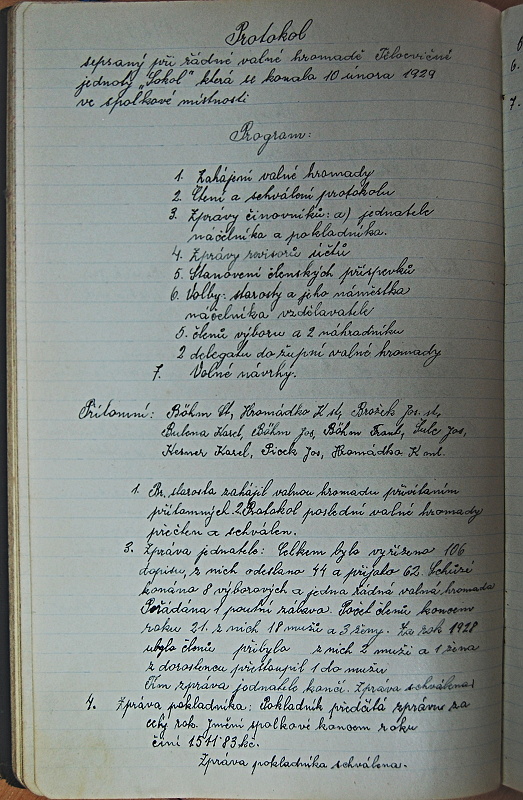 Protokol
sepsaný při řádné valné hromadě Tělocvičné
jednoty "Sokol" která se konala 10 února 1929
ve spolkové místnosti
Program:
1. Zahájení valné hromady
2. Čtení a schválení protokolu
3. Zprávy činovníků: a) jednatele
náčelníka a pokladníka.
4. Zprávy revisorů účtů
5. Stanovení členských příspěvků
6. Volby: starosty a jeho náměstka
náčelníka vzdělavatele
5. členů výboru a 2 náhradníku
2 delegátu do župní valné hromady
7. Volné návrhy.
Přítomni: Böhm St, Hromádko K st, Brožek Jos. st,
Bulena Karel, Böhm Jos, Böhm Frant, Šulc Jos,
Kerner Karel, Picek Jos, Hromádka K ml.
1. Br. starosta zahájil valnou hromadu přivítáním
přítomných. 2. Protokol poslední valné hromady
přečten a schválen.
3. Zpráva jednatele: Celkem bylo vyřízeno 106
dopisu, z nich odesláno 44 a přijato 62. Schůzí
konáno 8 výborových a jedna řádná valná hromada
Pořádána 1 pouťní zábava. Počet členů koncem
roku 21. z nich 18 mužů a 3 ženy. Za rok 1928
ubylo členů přibylo z nich 2 muži a 1 žena
z dorostenců přestoupil 1 do mužu
Tím zpráva jednatele končí. Zpráva schválena
4. Zpráva pokladníka: Pokladník předčítá zprávu za
celý rok. Jmění spolkové koncem roku
činí 1511 83 kč.
Zpráva pokladníka schválena.